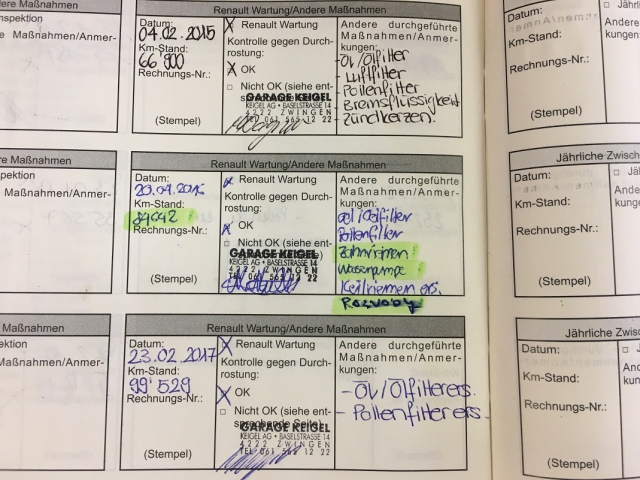 Maßnahmen
Renault Wartung/Andere Maßnahmen
spektion
Maßnahmen/Anmer-
Datum:
04.02.2015
Km-Stand:
66'900
Rechnungs-Nr.:
(Stempel)
X Renault Wartung
Kontrolle gegen Durch-
rostung:
X OK
□ Nicht OK (siehe ent-
GARAGE KEIGEL
KEIGEL AG • BASELSTRASSE 14
4222 ZWINGEN
TEL 061 565 12 22
Andere durchgeführte
Maßnahmen/Anmer-
kungen:
- Öl/Ölfilter
- Luftfilter
- Pollenfilter
- Bremsflüssigkeit
- Zündkerzen
Datum:
Km-Stand:
Rechnungs-Nr.:
(Stempel)
Andere Maßnahmen
Renault Wartung/Andere Maßnahmen
spektion
Maßnahmen/Anmer-
Datum:
Km-Stand:
Rechnungs-Nr.:
(Stempel)
x Renault Wartung
Kontrolle gegen Durch-
rostung:
x OK
□ Nicht OK (siehe ent-
GARAGE KEIGEL
KEIGEL AG • BASELSTRASSE 14
4222 ZWINGEN
TEL 061 565 12 22
Andere durchgeführte
Maßnahmen/Anmer-
kungen:
Oel/Oelfilter
Pollenfilter
Zahnriemen
Wasserpumpe
Keilriemen ers.
Jährliche Zwisc
Datum:
Km-Stand:
Rechnungs-Nr.:
(Stempel)
Maßnahmen
Renault Wartung/Andere Maßnahmen
Maßnahmen/Anmer-
Datum:
23.02.2017
Km-Stand:
99'529
Rechnungs-Nr.:
(Stempel)
X Renault Wartung
Kontrolle gegen Durch-
rostung:
X OK
□ Nicht OK (siehe ent-
sprechende Seite)
GARAGE KEIGEL
KEIGEL AG • BASELSTRASSE 14
4222 ZWINGEN
TEL 061 565 12 22
Andere durchgeführte
Maßnahmen/Anmer-
kungen:
- Öl/Ölfilter ers.
- Pollenfilter ers.
Jährliche Zwis
Datum:
Km-Stand:
Rechnungs-Nr.:
(Stempel)